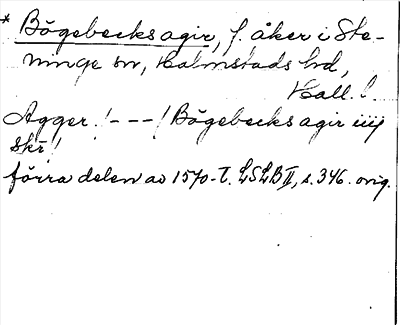 * Bögebecks agir, f. åker i Ste-
ninge sn, Halmstads hd,
Hall. l.
Agger. !---! Bögebecks agir iiij
skr!
förra delen av 1570-t. LSLB II, s. 346. orig.